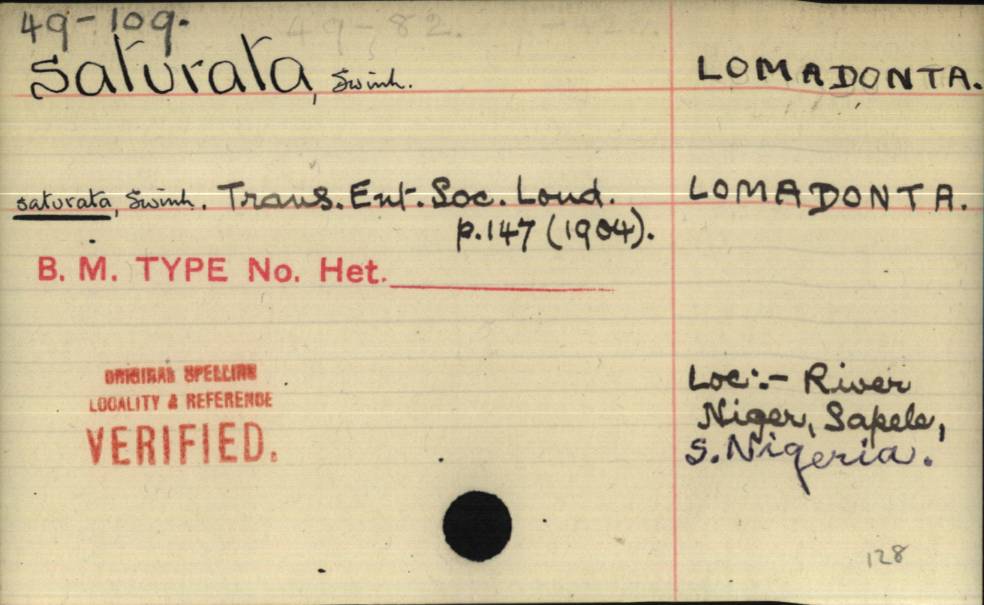 49-109.
49-82.
saturata, Swinh.
LOMADONTA.
saturata, Swinh. Trans. Ent. Soc. Lond.
p.147 (1904).
LOMADONTA.
B. M. TYPE No. Het.
ORIGINAL SPELLING
LOCALITY & REFERENCE
VERIFIED.
Loc:- River
Niger, Sapele,
S. Nigeria.
128